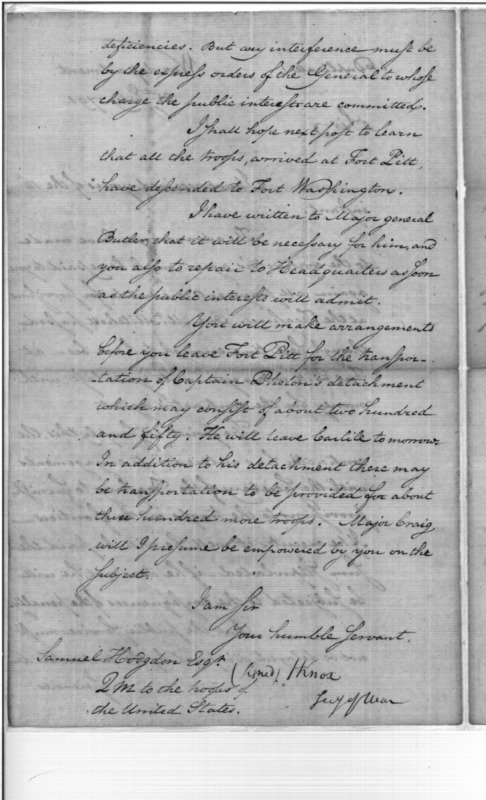 deficiencies. But any interference must be
by the express orders of the General to whose
charge the public interests are committed.
I shall hope next post to learn
that all the troops, arrived at Fort Pitt
have descended to Fort Washington.
I have written to Major general
Butler, that it will be necessary for him, and
you also to repair to Headquarters as soon
as the public interests will admit.
You will make arrangements
before you leave Fort Pitt for the transpor-
-tation of Captain Phelon's detachment
which may consist of about two hundred
and fifty. He will leave Carlile tomorrow.
In addition to his detachment there may
be transportation to be provided for about
three hundred more troops. Major Craig,
will I presume be empowered by you on the
subject.
I am Sir
Your humble Servant.
(signed) HKnox
Secy of War
Samuel Hodgdon Esqr.
QM to the troops of
the United States.